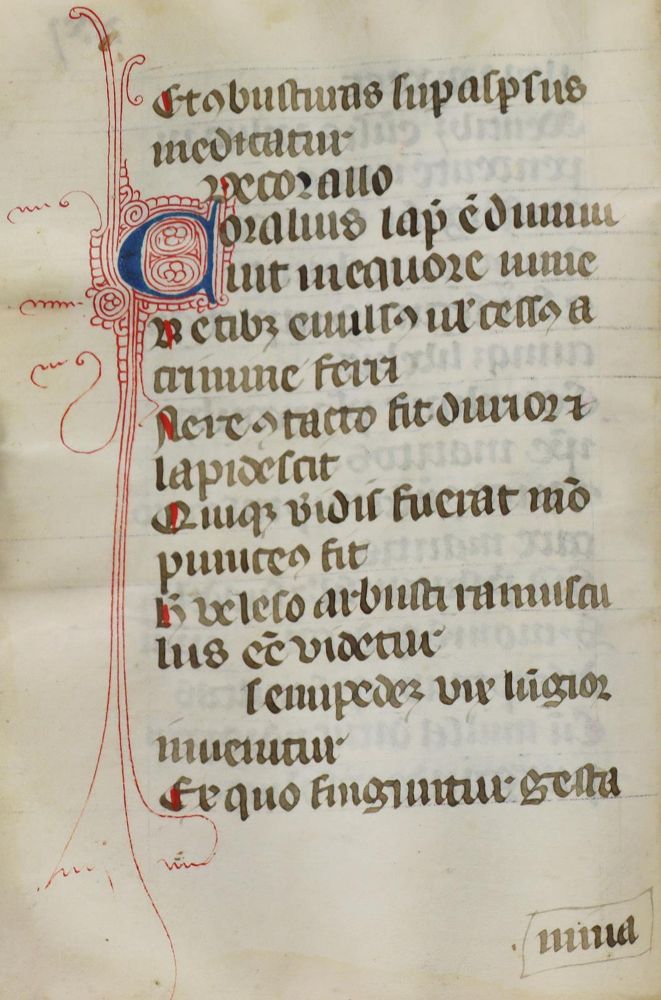 Et ꝯbusturas sup aspsus
medicatur
De corallo
Coralius lap̄ ē dum ui
uit inequore uime
Retibꝫ euulsꝯ ul' cessꝯ a
crimine ferri
Aere ꝯtacto fit durior ⁊
lapidescit
Quiqꝫ vidis fuerat mō
puniceꝯ fit
arbusti ramuscu
lus eē videtur
semipedeꝫ vix lūgior
inuenitur
Ex quo finguntur gesta
mina